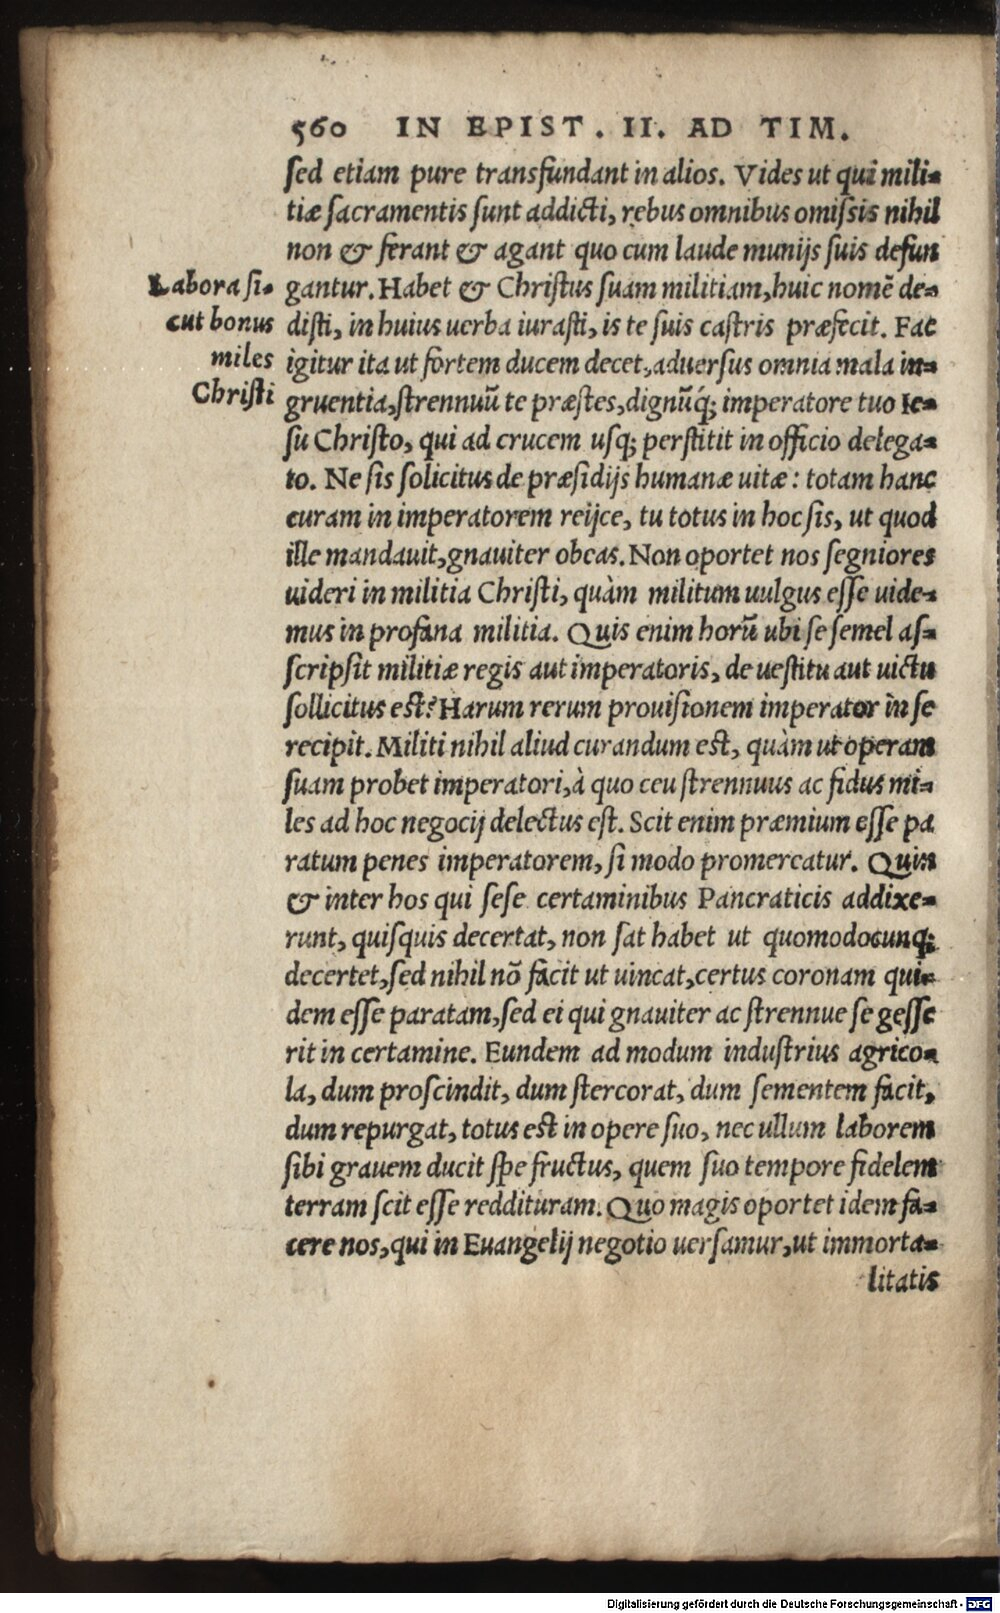 560 IN EPIST. II. AD TIM.
sed etiam pure transfundant in alios. Vides ut qui mili-
tiæ sacramentis sunt addicti, rebus omnibus omissis nihil
non & ferant & agant quo cum laude munijs suis defun
Labora si-
gantur. Habet & Christus suam militiam, huic nomẽ de-
cut bonus
disti, in huius uerba iurasti, is te suis castris præfecit. Fac
miles
igitur ita ut fortem ducem decet, aduersus omnia mala in-
Christi
gruentia, strennuũ te præstes, dignũq́; imperatore tuo Ie-
su Christo, qui ad crucem usq; perstitit in officio delega-
to. Ne sis solicitus de præsidijs humanæ uitæ: totam hanc
curam in imperatorem reijce, tu totus in hoc sis, ut quod
ille mandauit, gnauiter obeas. Non oportet nos segniores
uideri in militia Christi, quàm militum uulgus esse uide-
mus in profana militia. Quis enim horũ ubi se semel as-
scripsit militiæ regis aut imperatoris, de uestitu aut uictu
sollicitus est? Harum rerum prouisionem imperator in se
recipit. Militi nihil aliud curandum est, quàm ut operam
suam probet imperatori, à quo ceu strennuus ac fidus mi-
les ad hoc negocij delectus est. Scit enim præmium esse pa
ratum penes imperatorem, si modo promereatur. Quin
& inter hos qui sese certaminibus Pancraticis addixe-
runt, quisquis decertat, non sat habet ut quomodocunq;
decertet, sed nihil nõ facit ut uincat, certus coronam qui-
dem esse paratam, sed ei qui gnauiter ac strennue se gesse
rit in certamine. Eundem ad modum industrius agrico-
la, dum proscindit, dum stercorat, dum sementem facit,
dum repurgat, totus est in opere suo, nec ullum laborem
sibi grauem ducit spe fructus, quem suo tempore fidelem
terram scit esse reddituram. Quo magis oportet idem fa-
cere nos, qui in Euangelij negotio uersamur, ut immorta-
litatis
Digitalisierung gefördert durch die Deutsche Forschungsgemeinschaft - DFG